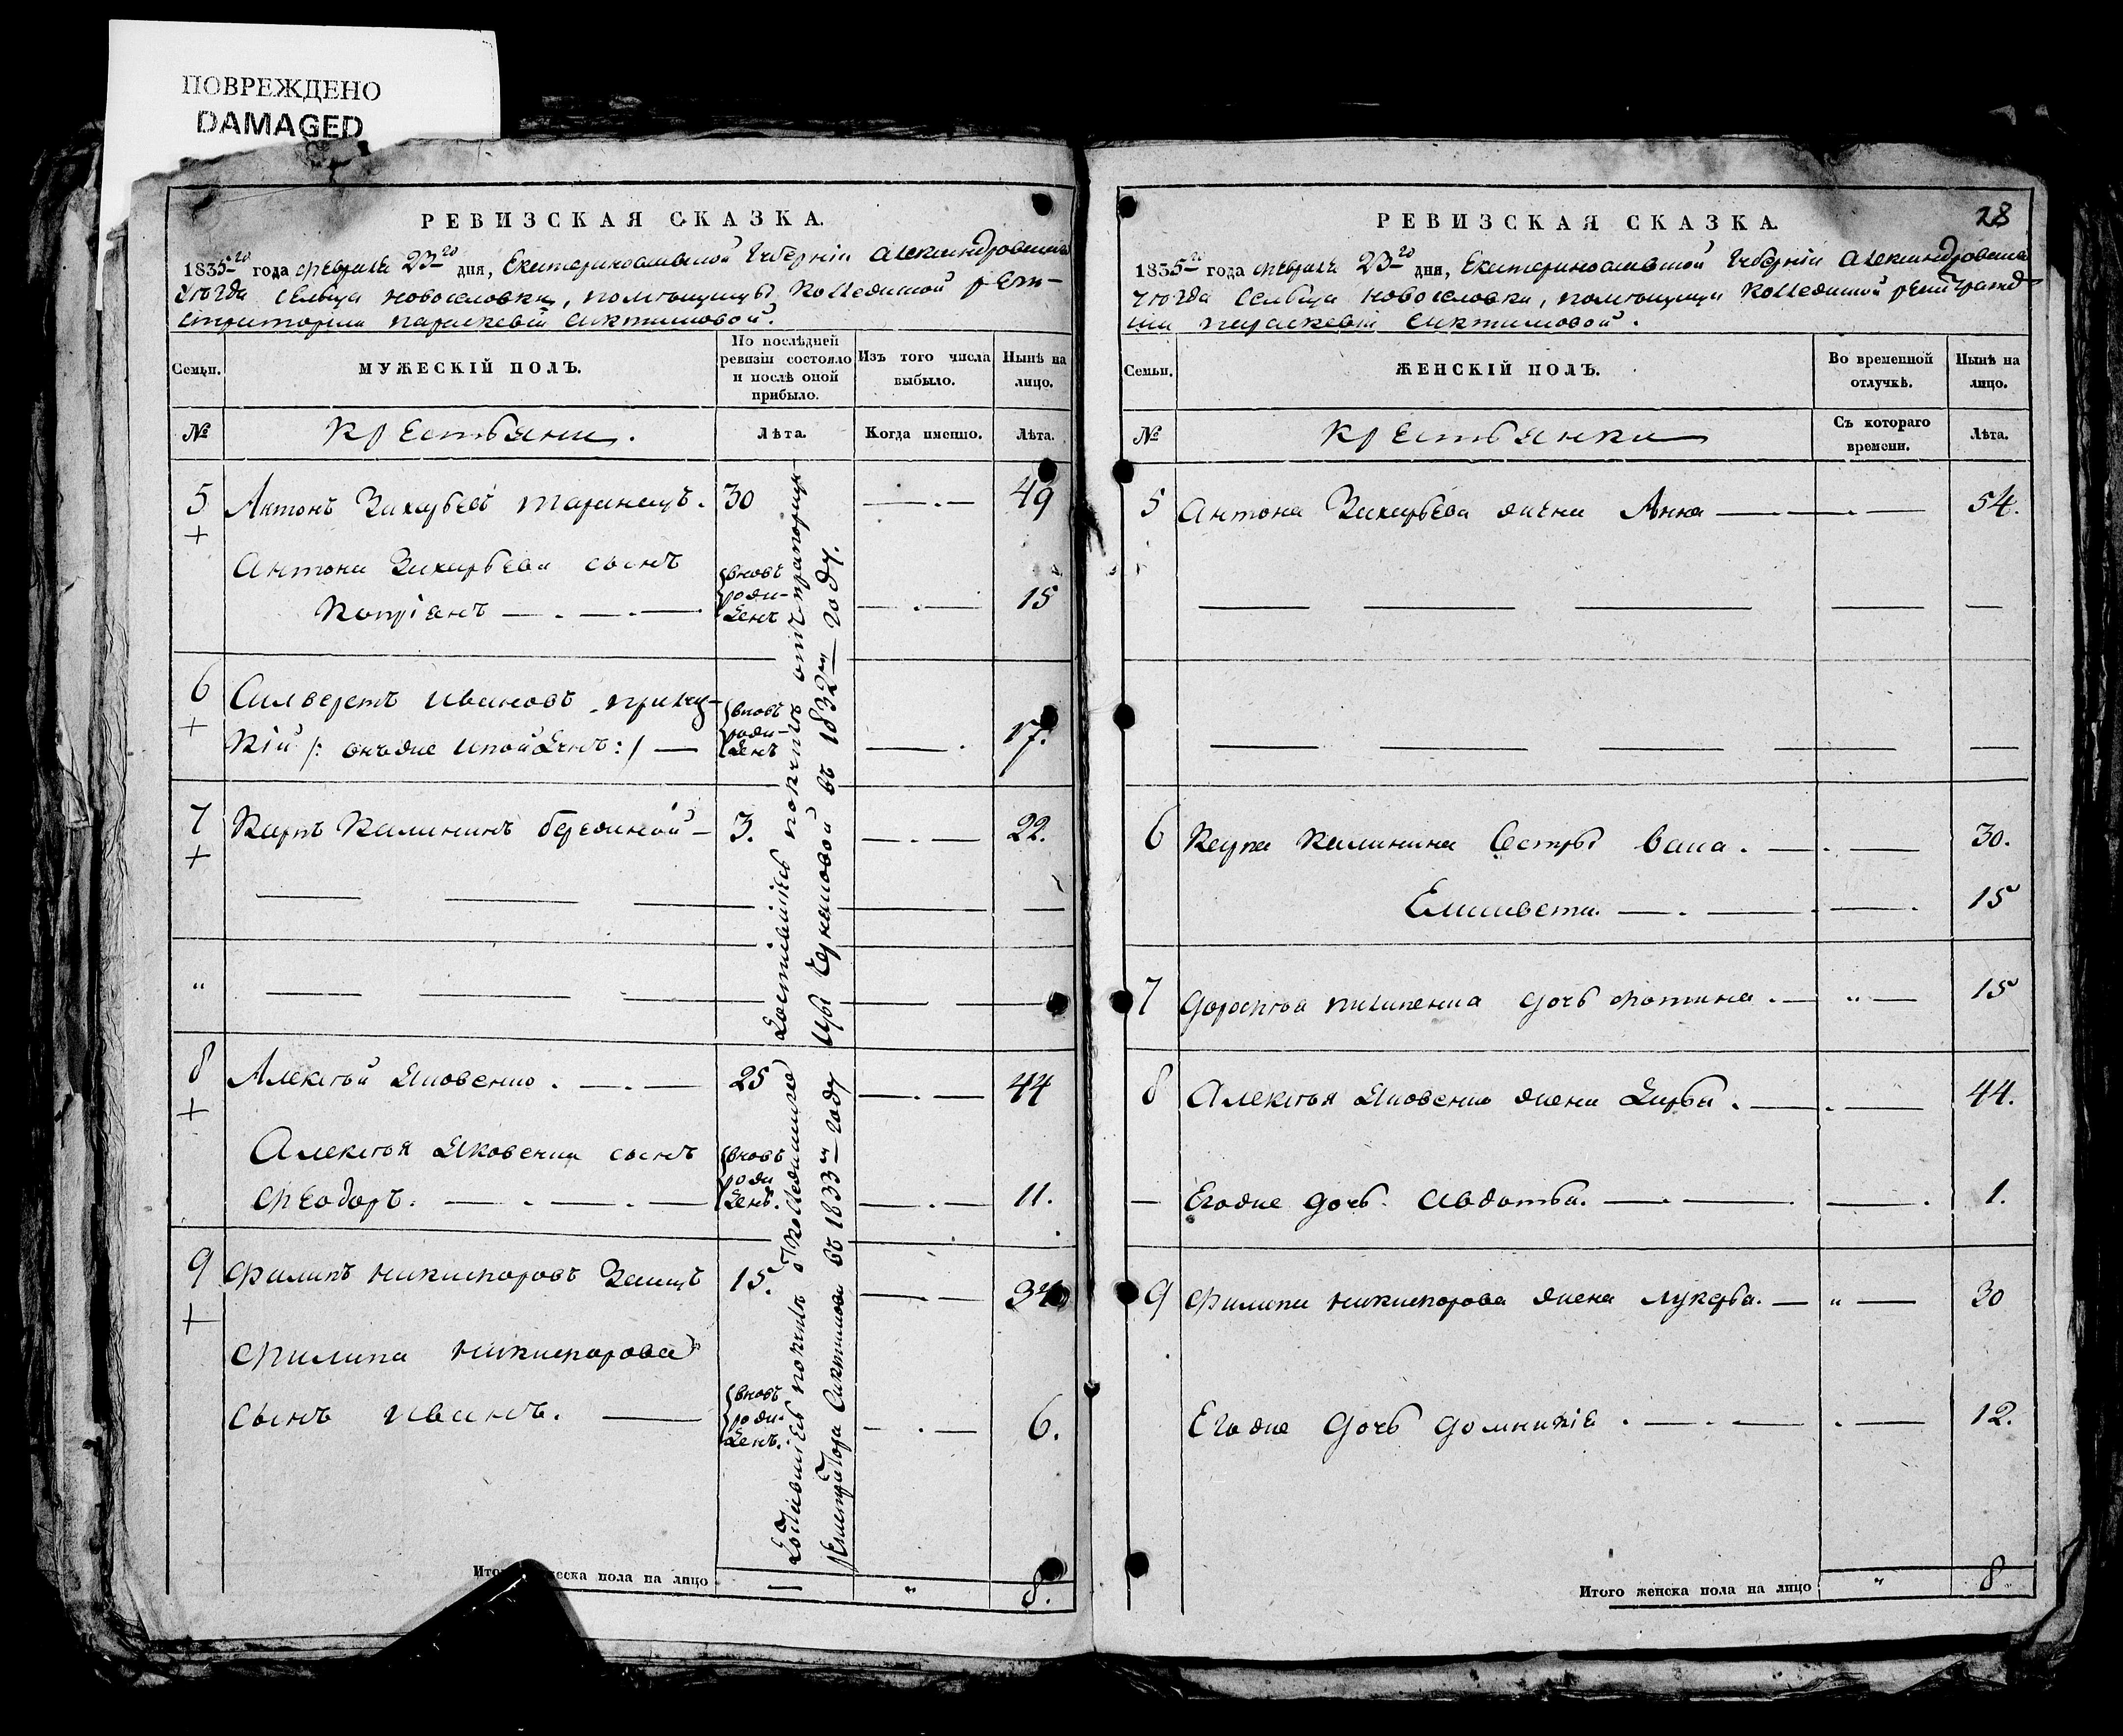 ПОВРЕЖДЕНО
DAMAGED
РЕВИЗСКАЯ СКАЗКА.
1835го года февраля 23го дня, Екатеринославской Губерніи Александровскаго
уѣзда сельца Новоселовки, помѣщицы Коллежской реги-
страторши Параскевіи
Семьи.
МУЖЕСКІЙ ПОЛЪ.
По послѣдней ревизіи состояло и послѣ оной прибыло.
Изъ того числа выбыло.
Нынѣ на лицо.
№
Крестьяни.
Лѣта.
Когда именно.
Лѣта.
5 Антонъ Захарьевъ Таранецъ. 30 49
Антона Захарьева сынъ
Копріянъ вновь рожденъ 15
6 Силверстъ Ивановъ
кій /: онъ же :/ вновь рожденъ 17.
7 Карпъ Калининъ 3. 22.
"
8 Алексѣй Яковенко. 25 44
Алексѣя Яковенка сынъ
Ѳеодоръ. вновь рожденъ. 11.
9 Филипъ Никифоровъ Заецъ 15. 34
Филипа Никифорова
сынъ Иванъ. вновь рожденъ. 6.
Доставшіесь покупкѣ отъ прапорщи-
цы въ 1832м году.
въ 1833м году
Итого мужеска пола на лицо " 8.
28
РЕВИЗСКАЯ СКАЗКА.
1835го года февраля 23го дня, Екатеринославской Губерніи Александровскаго
уѣзда сельца Новоселовки, помѣщицы Коллежской регистратор
ши Параскевіи
Семьи.
ЖЕНСКІЙ ПОЛЪ.
Во временной отлучкѣ.
Нынѣ на лицо.
№
Крестьянки
Съ котораго времени.
Лѣта.
5 Антона Захарьева жена Анна 54.
6 Карпа Калинина Сестры Васа. 30.
Елисавета. 15
7 дочь Фотина. " 15
8 Алексѣя Яковенко жена Дарья. 44.
Егоже дочь Авдотья. 1.
9 Филипа Никифорова жена Лукерья. " 30
Егоже дочь Домникія. 12.
Итого женска пола на лицо " 8